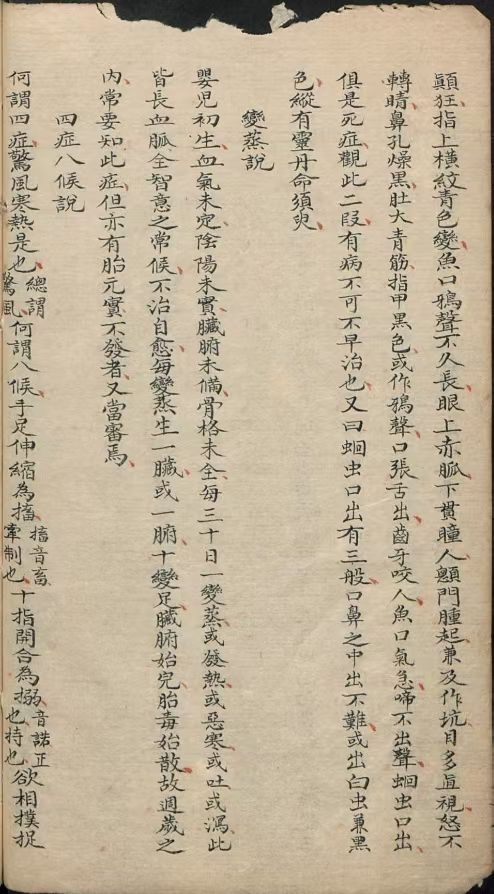 顛狂指上橫紋青色變魚口鴉聲不久長眼上赤脈下貫瞳人顖門腫起兼及作坑目多直視怒不
轉睛鼻孔燥黑肚大青筋指甲黑色或作鴉聲口張舌出齒牙咬人魚口氣急啼不出聲蛔虫口出
俱是死症觀此二段有病不可不早治也又曰蛔虫口出有三般口鼻之中出不難或出白虫兼黑
色縱有靈丹命須㬰
變蒸說
嬰児初生血氣未定陰陽未實臟腑未備骨格未全每三十日一變蒸或發熱或惡寒或吐或瀉此
皆長血脈全智意之常候不治自愈每變蒸生一臟或一腑十變足臟腑始完胎毒始散故週歲之
內常要知此症但亦有胎元實不發者又當審焉
四症八候說
何謂四症驚風寒熱是也總謂驚風何謂八候手足伸縮為搐搐音畜牽制也十指開合為搦音諾正也持也欲相撲捉